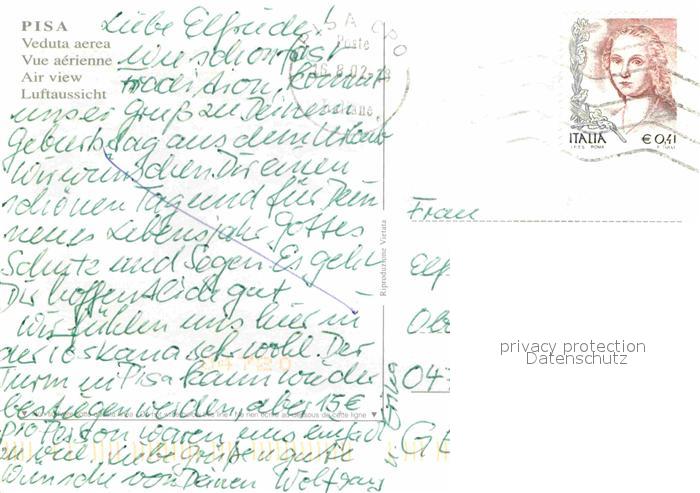 PISA
Veduta aerea
Vue aérienne
Air view
Luftaussicht
Liebe Elfriede!
wie schon fast
Tradition, kommt
unser Gruß zu Deinem
Geburtstag aus dem Urlaub
Wir wünschen Dir einen
schönen Tag und für Dein
neues Lebensjahr Gottes
Schutz und Segen. Es geht
Dir hoffentlich gut
Wir fühlen uns hier in
der Toskana sehr wohl. Der
Turm in Pisa kann wieder
bestiegen werden, aber 15€
pro Person waren uns einfach
zu viel. Liebe Grüße u. gute
Wünsche von Deinen Wolfgang
PISA CPO
Poste
Italiane
ITALIA
€ 0,41
I.P.Z.S. ROMA
Riproduzione Vietata
Frau
Elf
04
privacy protection
Datenschutz